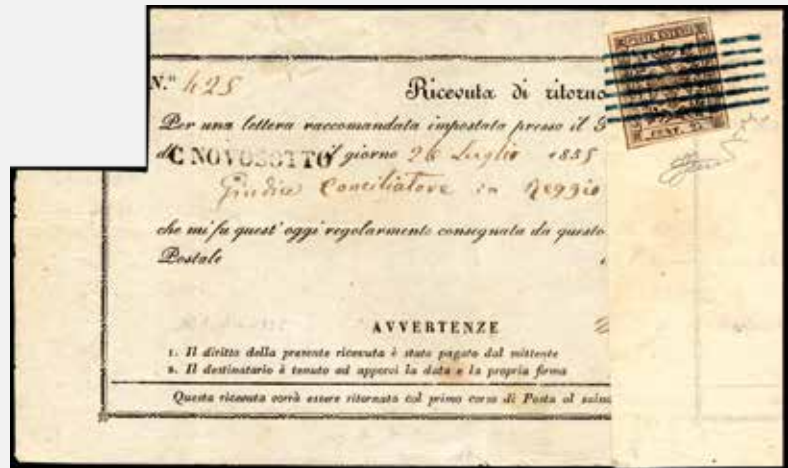 POSTE ESTENSI
CENT. 25
N.º 425 Ricevuta di ritorno
Per una lettera raccomandata impostata presso il
di C NOVOSOTTO il giorno 26 Luglio 1855
Giudice Conciliatore in Reggio
che mi fu quest'oggi regolarmente consegnata da questo
Postale
AVVERTENZE
1. Il diritto della presente ricevuta è stato pagato dal mittente
2. Il destinatario è tenuto ad apporvi la data e la propria firma
Questa ricevuta dovrà essere ritornata col primo corso di Posta al